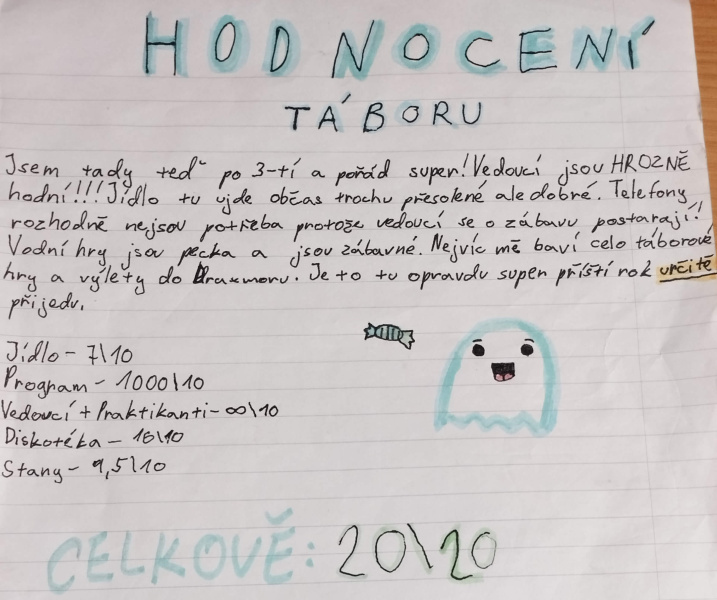 HODNOCENÍ
TÁBORU
Jsem tady teď po 3-tí a pořád super! Vedoucí jsou HROZNĚ
hodní!!! Jídlo tu ujde občas trochu přesolené ale dobré. Telefony
rozhodně nejsou potřeba protože vedoucí se o zábavu postarají!
Vodní hry jsou pecka a jsou zábavné. Nejvíc mě baví celo táborové
hry a výlety do Draxmoru. Je to tu opravdu super příští rok určitě
přijedu.
Jídlo - 7\10
Program - 1000\10
Vedoucí + Praktikanti - ∞\10
Diskotéka - 16\10
Stany - 9,5\10
CELKOVĚ: 20\20